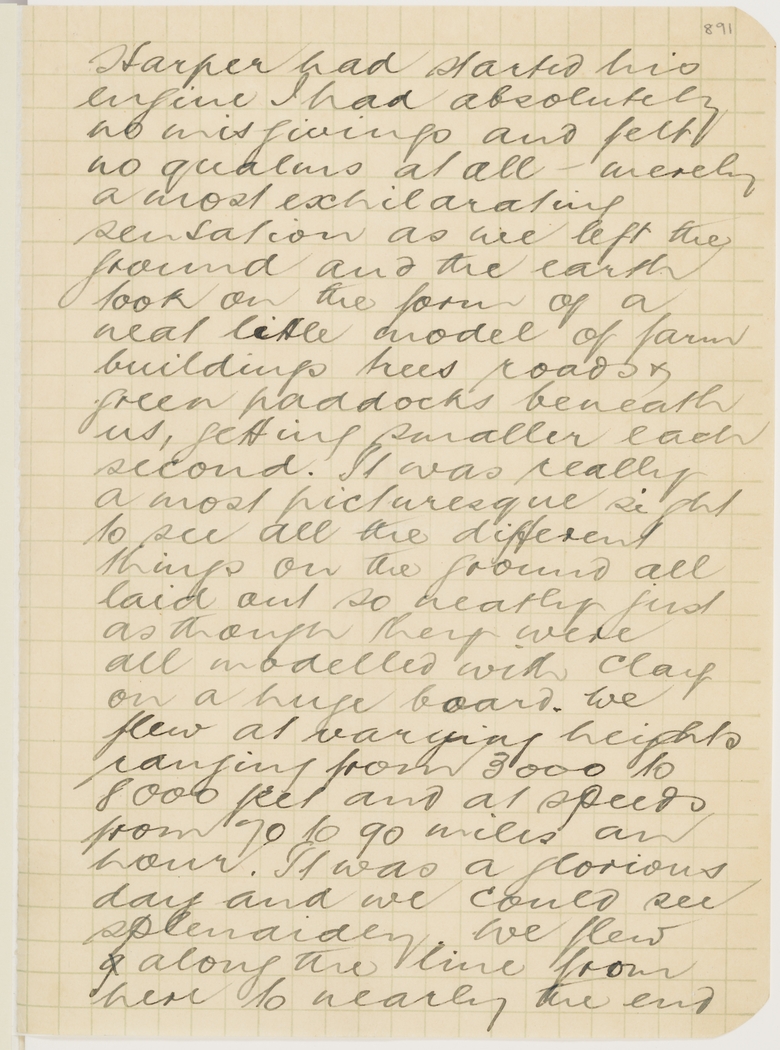 891
Harper had started his
engine I had absolutely
no misgivings and felt
no qualms at all - merely
a most exhilarating
sensation as we left the
ground and the earth
took on the form of a
neat little model of farm
buildings trees roads &
green paddocks beneath
us, getting smaller each
second. It was really
a most picturesque sight
to see all the different
things on the ground all
laid out so neatly just
as though they were
all modelled with clay
on a huge board. We
flew at varying heights
ranging from 3000 to
8000 feet and at speeds
from 70 to 90 miles an
hour. It was a glorious
day and we could see
splendidly. We flew
along the line from
here to nearly the end